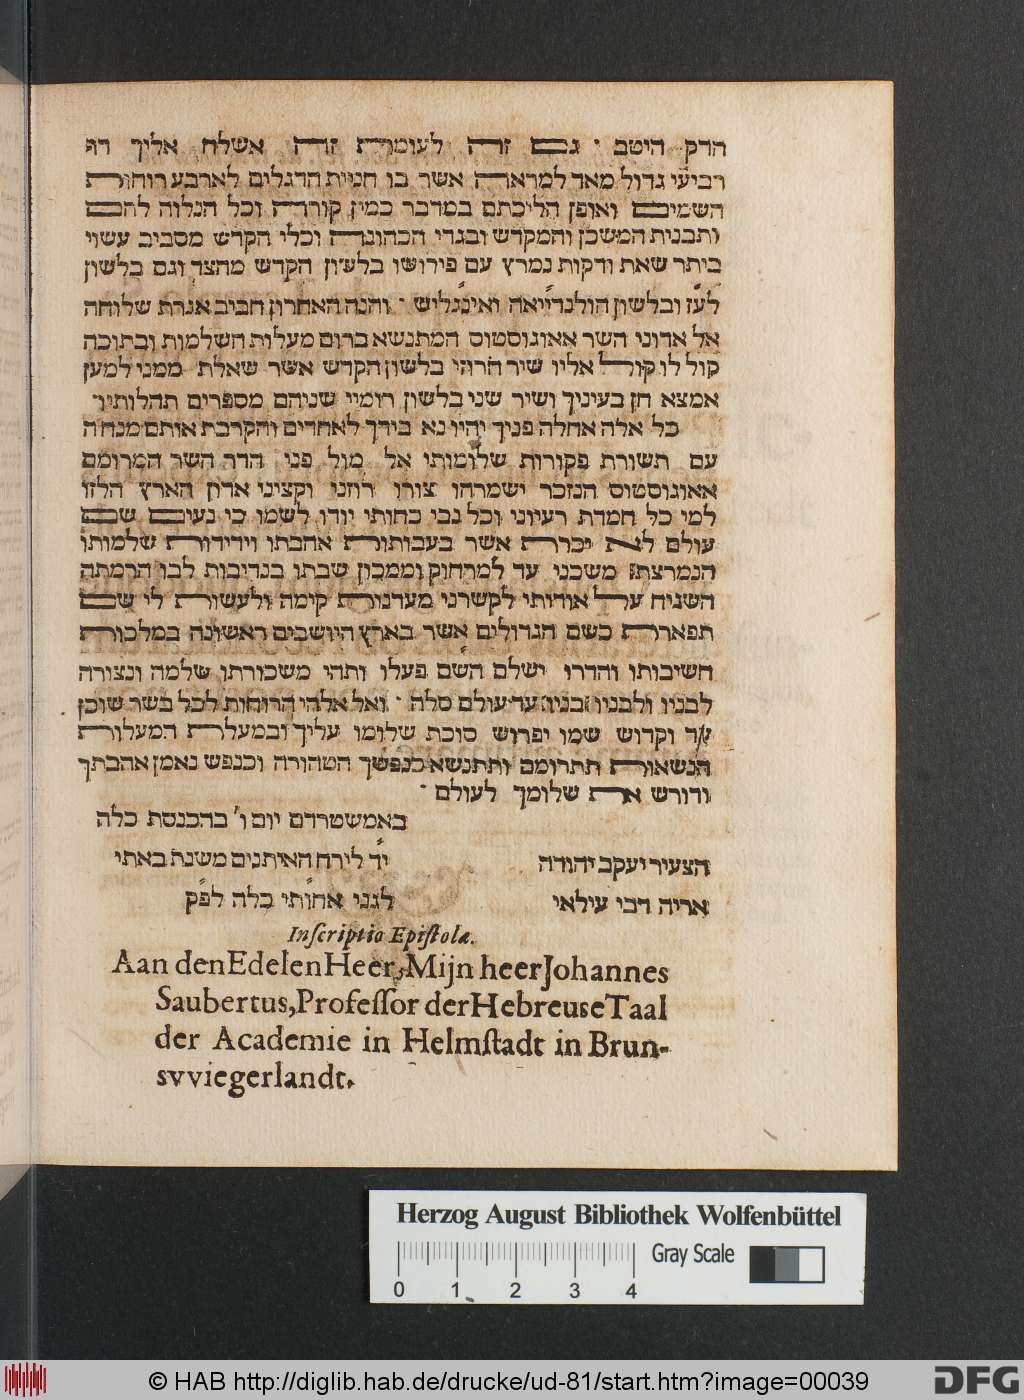 הדק היטב · גם זה לעומת זה אשלח אליך דף
רביעי גדול מאד למראה אשר בו חניית הדגלים לארבע רוחות
השמים ואופן הליכתם במדבר כמין קורה וכל הנלוה להם
ותבנית המשכן והמקדש ובגדי הכהונה וכלי הקדש מסביב עשוי
ביתר שאת ודקות נמרץ עם פירושו בלשון הקדש מהצד וגם בלשון
לעז ובלשון הולנדייאה ואינגליש · והנה האחרון חביב אגרת שלוחה
אל אדוני השר אאוגוסטוס המתנשא ברום מעלות השלמות ובתוכה
קול לו קורל אליו שיר חרוזי בלשון הקדש אשר שאלת ממני למען
אמצא חן בעיניך ושיר שני בלשון רומיי שניהם מספרים תהלותיו·
כל אלה אחלה פניך יהיו נא בידך לאחדים והקרבת אותם מנחה
עם תשורת פקודות שלומותי אל מול פני הדר השר המרומם
אאוגוסטוס הנזכר ישמרהו צורו רוזני וקציני ארון הארץ הלזו
למי כל חמדת רעיוני וכל נבי כחותי יודו לשמו כי נעים שם
עולם לא יכרת אשר בעבותות אהבתו וידידות שלמותו
הנמרצת משכני עד למרחוק וממכון שבתו בנדיבות לבו הרמתה
השגיח על אודותי לקשרני מעדנות קימה ולעשות לי שם
תפארת כשם הגדולים אשר בארץ היושבים ראשונה במלכות
חשיבותו והדרו ישלם השם פעלו ותהי משכורתו שלמה ונצורה
לבניו ולבניו בניו עד עולם סלה · ואל אלהי הרוחות לכל בשר שוכן
עד וקדוש שמו יפרוש סוכת שלומו עליך ובמעלת המעלות
הנשאות תתרומם ותתנשא כנפשך הטהורה וכנפש נאמן אהבתך
ודורש את שלומך לעולם ·
באמשטרדם יום ו' בהכנסת כלה
הצעיר יעקב יהודה יד לירח האיתנים משנת באתי
אריה דבי עילאי לגני אחותי כלה לפק
Inscriptio Epistolæ.
Aan den Edelen Heer, Mijn heer Johannes
Saubertus, Professor der Hebreuse Taal
der Academie in Helmstadt in Brun-
svviegerlandt.
Herzog August Bibliothek Wolfenbüttel
Gray Scale
0 1 2 3 4
© HAB http://diglib.hab.de/drucke/ud-81/start.htm?image=00039
DFG